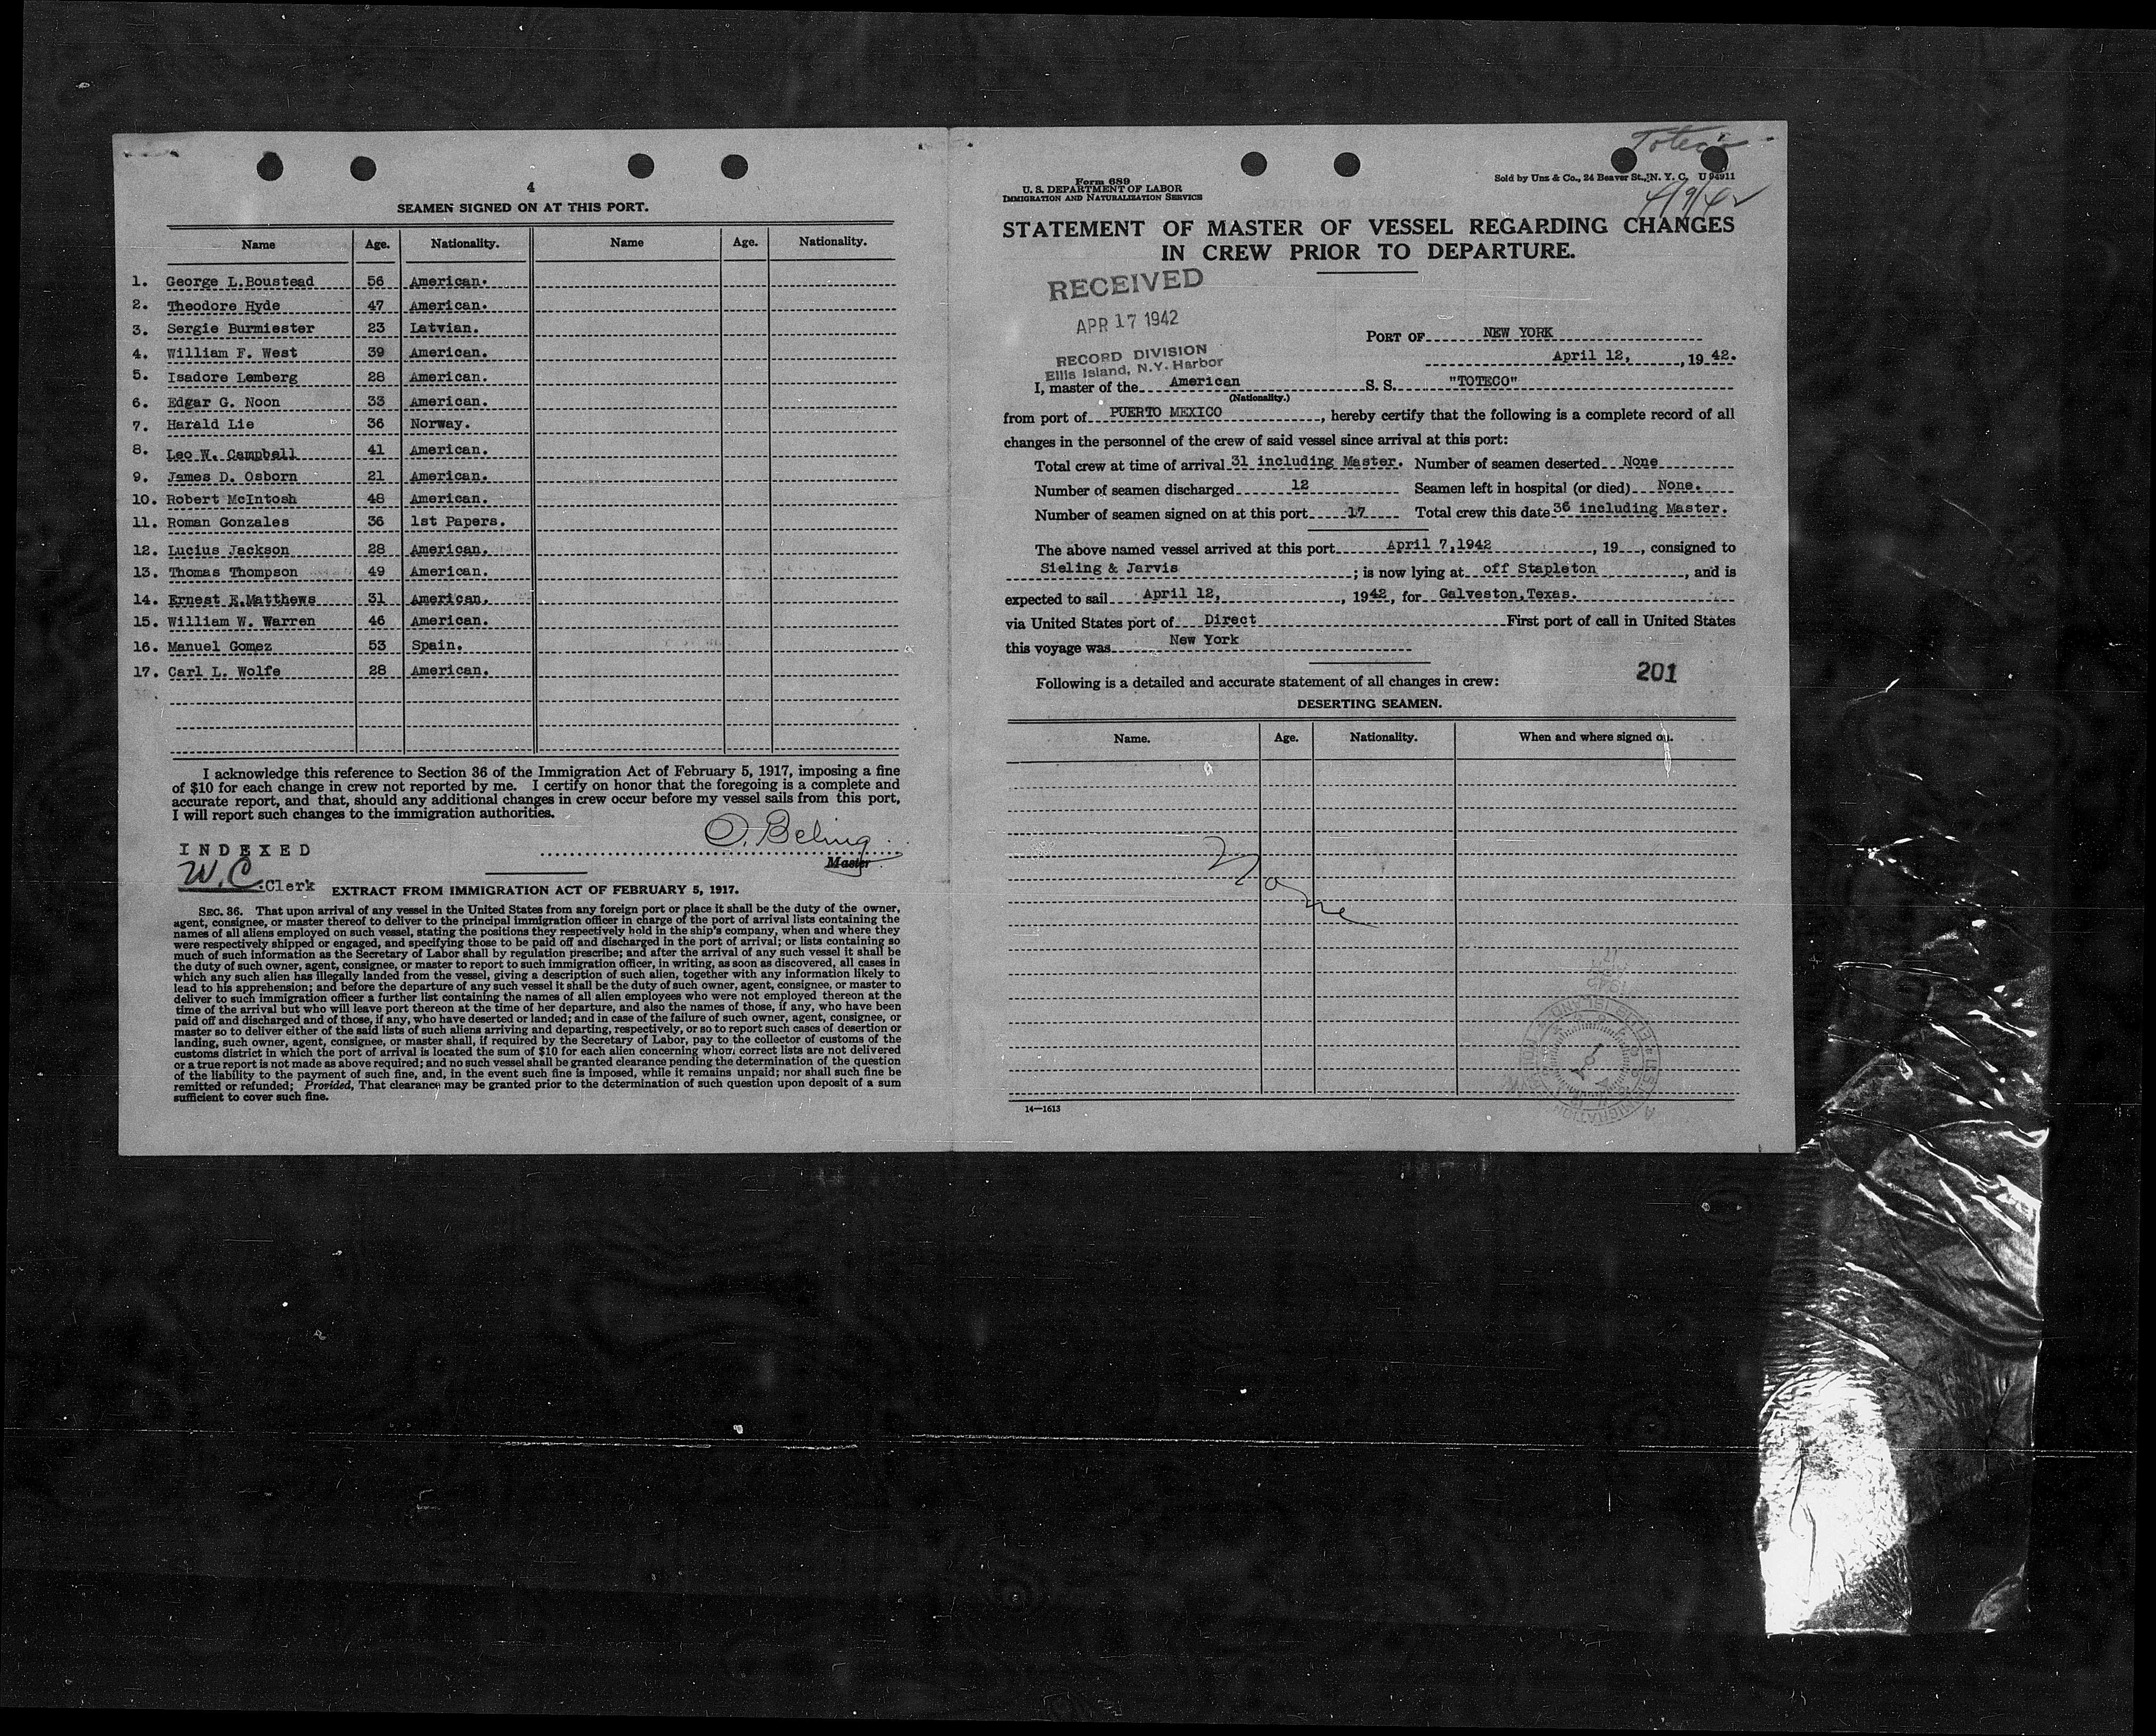 4
SEAMEN SIGNED ON AT THIS PORT.
Name Age. Nationality. Name Age. Nationality.
1. George L.Boustead 56 American.
2. Theodore Hyde 47 American.
3. Sergie Burmiester 23 Latvian.
4. William F. West 39 American.
5. Isadore Lemberg 28 American.
6. Edgar G. Noon 33 American.
7. Harald Lie 36 Norway.
8. Leo W. Campbell 41 American.
9. James D. Osborn 21 American.
10. Robert McIntosh 48 American.
11. Roman Gonzales 36 1st Papers.
12. Lucius Jackson 28 American.
13. Thomas Thompson 49 American.
14. Ernest E.Matthews 31 American.
15. William W. Warren 46 American.
16. Manuel Gomez 53 Spain.
17. Carl L. Wolfe 28 American.
I acknowledge this reference to Section 36 of the Immigration Act of February 5, 1917, imposing a fine
of $10 for each change in crew not reported by me. I certify on honor that the foregoing is a complete and
accurate report, and that, should any additional changes in crew occur before my vessel sails from this port,
I will report such changes to the immigration authorities.
O. Beling
Master
INDEXED
W.C. Clerk
EXTRACT FROM IMMIGRATION ACT OF FEBRUARY 5, 1917.
SEC. 36. That upon arrival of any vessel in the United States from any foreign port or place it shall be the duty of the owner,
agent, consignee, or master thereof to deliver to the principal immigration officer in charge of the port of arrival lists containing the
names of all aliens employed on such vessel, stating the positions they respectively hold in the ship's company, when and where they
were respectively shipped or engaged, and specifying those to be paid off and discharged in the port of arrival; or lists containing so
much of such information as the Secretary of Labor shall by regulation prescribe; and after the arrival of any such vessel it shall be
the duty of such owner, agent, consignee, or master to report to such immigration officer, in writing, as soon as discovered, all cases in
which any such alien has illegally landed from the vessel, giving a description of such alien, together with any information likely to
lead to his apprehension; and before the departure of any such vessel it shall be the duty of such owner, agent, consignee, or master to
deliver to such immigration officer a further list containing the names of all alien employees who were not employed thereon at the
time of the arrival but who will leave port thereon at the time of her departure, and also the names of those, if any, who have been
paid off and discharged and of those, if any, who have deserted or landed; and in case of the failure of such owner, agent, consignee, or
master so to deliver either of the said lists of such aliens arriving and departing, respectively, or so to report such cases of desertion or
landing, such owner, agent, consignee, or master shall, if required by the Secretary of Labor, pay to the collector of customs of the
customs district in which the port of arrival is located the sum of $10 for each alien concerning whom correct lists are not delivered
or a true report is not made as above required; and no such vessel shall be granted clearance pending the determination of the question
of the liability to the payment of such fine, and, in the event such fine is imposed, while it remains unpaid; nor shall such fine be
remitted or refunded; Provided, That clearance may be granted prior to the determination of such question upon deposit of a sum
sufficient to cover such fine.
Toteco
Form 689
U. S. DEPARTMENT OF LABOR
IMMIGRATION AND NATURALIZATION SERVICE
Sold by Unz & Co., 24 Beaver St., N. Y. C. U 94911
4/9/42
STATEMENT OF MASTER OF VESSEL REGARDING CHANGES
IN CREW PRIOR TO DEPARTURE.
RECEIVED
APR 17 1942
RECORD DIVISION
Ellis Island, N.Y. Harbor
PORT OF NEW YORK
April 12, , 19 42.
I, master of the American S. S. "TOTECO"
(Nationality.)
from port of PUERTO MEXICO , hereby certify that the following is a complete record of all
changes in the personnel of the crew of said vessel since arrival at this port:
Total crew at time of arrival 31 including Master. Number of seamen deserted None
Number of seamen discharged 12 Seamen left in hospital (or died) None.
Number of seamen signed on at this port 17 Total crew this date 36 including Master.
The above named vessel arrived at this port April 7,1942 , 19 , consigned to
Sieling & Jarvis ; is now lying at off Stapleton , and is
expected to sail April 12, , 1942, for Galveston,Texas.
via United States port of Direct First port of call in United States
this voyage was New York
201
Following is a detailed and accurate statement of all changes in crew:
DESERTING SEAMEN.
Name. Age. Nationality. When and where signed on.
None
14—1613